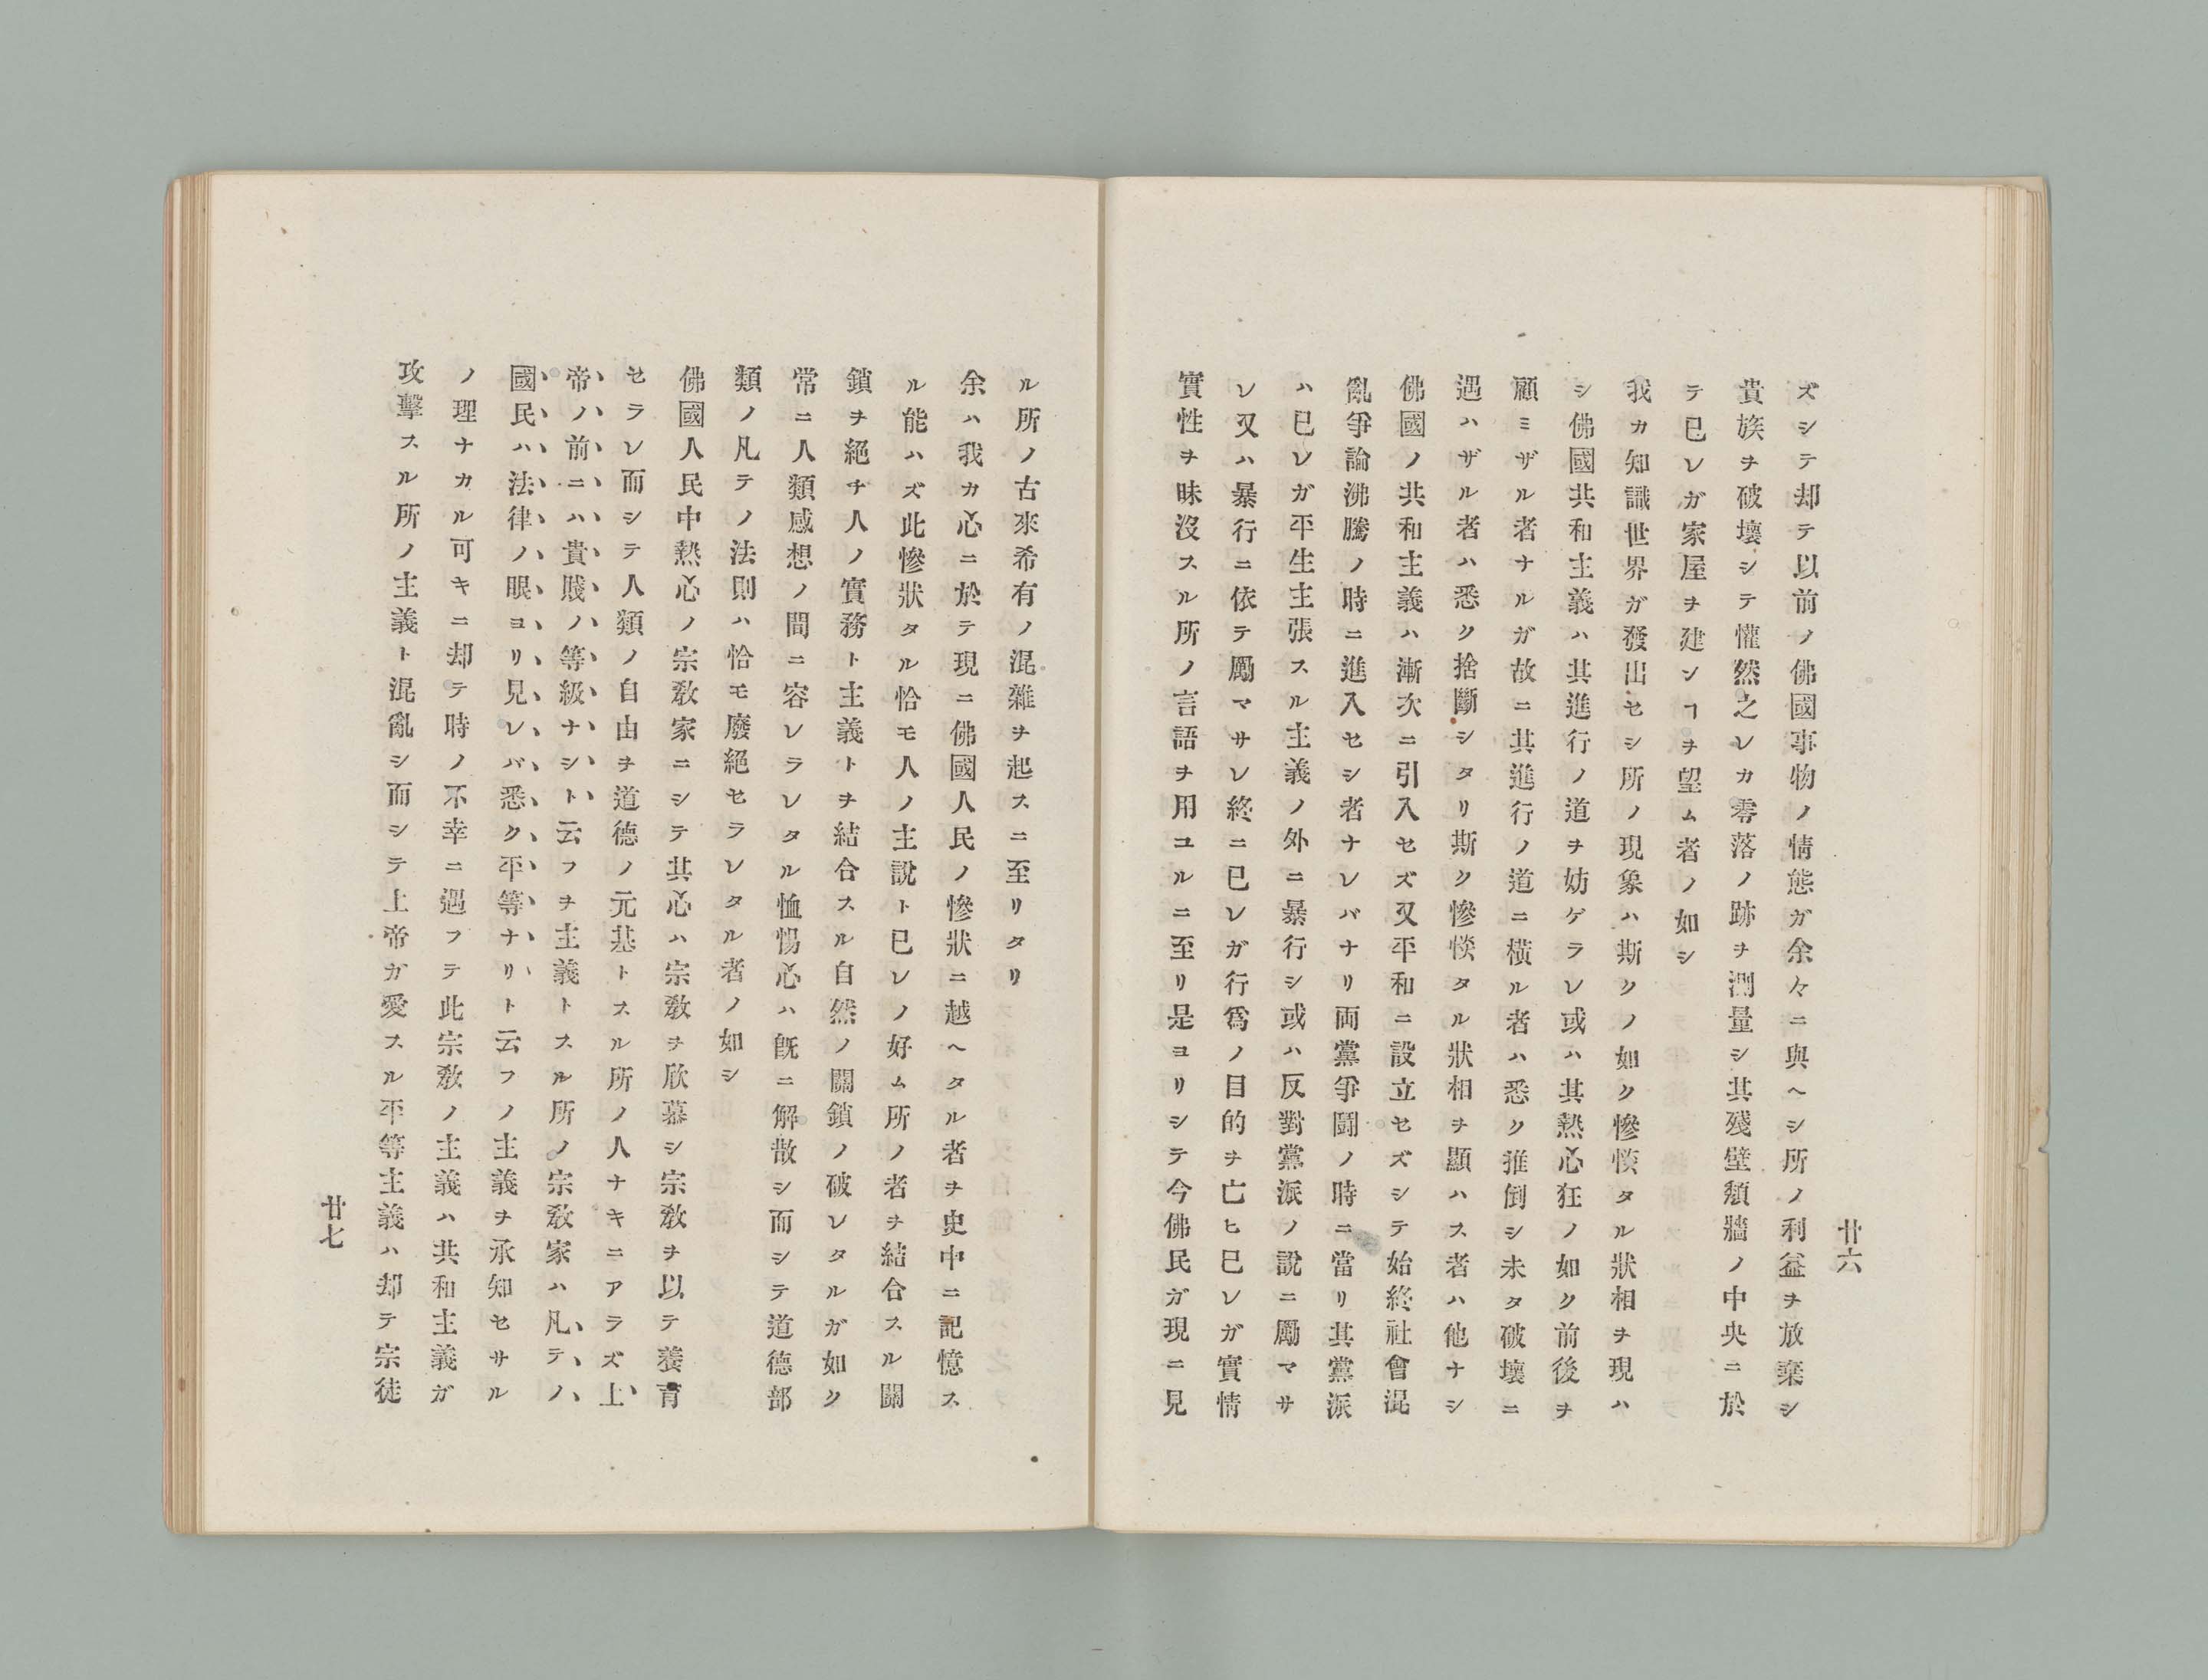 廿六
ズシテ却テ以前ノ佛國事物ノ情態ガ余々ニ與ヘシ所ノ利益ヲ放棄シ
貴族ヲ破壞シテ懽然之レカ零落ノ跡ヲ測量シ其殘壁頽牆ノ中央ニ於
テ已レガ家屋ヲ建ンヿヲ望ム者ノ如シ
我カ知識世界ガ發出セシ所ノ現象ハ斯クノ如ク慘悷タル狀相ヲ現ハ
シ佛國共和主義ハ其進行ノ道ヲ妨ゲラレ或ハ其熱心狂ノ如ク前後ヲ
顧ミザル者ナルガ故ニ其進行ノ道ニ橫ル者ハ悉ク推倒シ未タ破壞ニ
遇ハザル者ハ悉ク捨斷シタリ斯ク慘悷タル狀相ヲ顯ハス者ハ他ナシ
佛國ノ共和主義ハ漸次ニ引入セズ又平和ニ設立セズシテ始終社會混
亂爭論沸騰ノ時ニ進入セシ者ナレバナリ両黨爭鬪ノ時ニ當リ其黨派
ハ已レガ平生主張スル主義ノ外ニ暴行シ或ハ反對黨派ノ說ニ勵マサ
レ又ハ暴行ニ依テ勵マサレ終ニ已レガ行爲ノ目的ヲ亡ヒ已レガ實情
實性ヲ昧沒スル所ノ言語ヲ用ユルニ至リ是ヨリシテ今佛民ガ現ニ見
ル所ノ古來希有ノ混雜ヲ起スニ至リタリ
余ハ我カ心ニ於テ現ニ佛國人民ノ慘狀ニ越ヘタル者ヲ史中ニ記憶ス
ル能ハズ此慘狀タル恰モ人ノ主說ト已レノ好ム所ノ者ヲ結合スル關
鎖ヲ絕チ人ノ實務ト主義トヲ結合スル自然ノ關鎖ノ破レタルガ如ク
常ニ人類感想ノ間ニ容レラレタル恤惕心ハ旣ニ解散シ而シテ道德部
類ノ凡テノ法則ハ恰モ廢絕セラレタル者ノ如シ
佛國人民中熱心ノ宗敎家ニシテ其心ハ宗敎ヲ欣慕シ宗敎ヲ以テ養育
セラレ而シテ人類ノ自由ヲ道德ノ元基トスル所ノ人ナキニアラズ上
帝ノ前ニハ貴賤ノ等級ナシト云フヲ主義トスル所ノ宗敎家ハ凡テノ
國民ハ法律ノ眼ヨリ見レバ悉ク平等ナリト云フノ主義ヲ承知セサル
ノ理ナカル可キニ却テ時ノ不幸ニ遇フテ此宗敎ノ主義ハ共和主義ガ
攻擊スル所ノ主義ト混亂シ而シテ上帝ガ愛スル平等主義ハ却テ宗徒
廿七